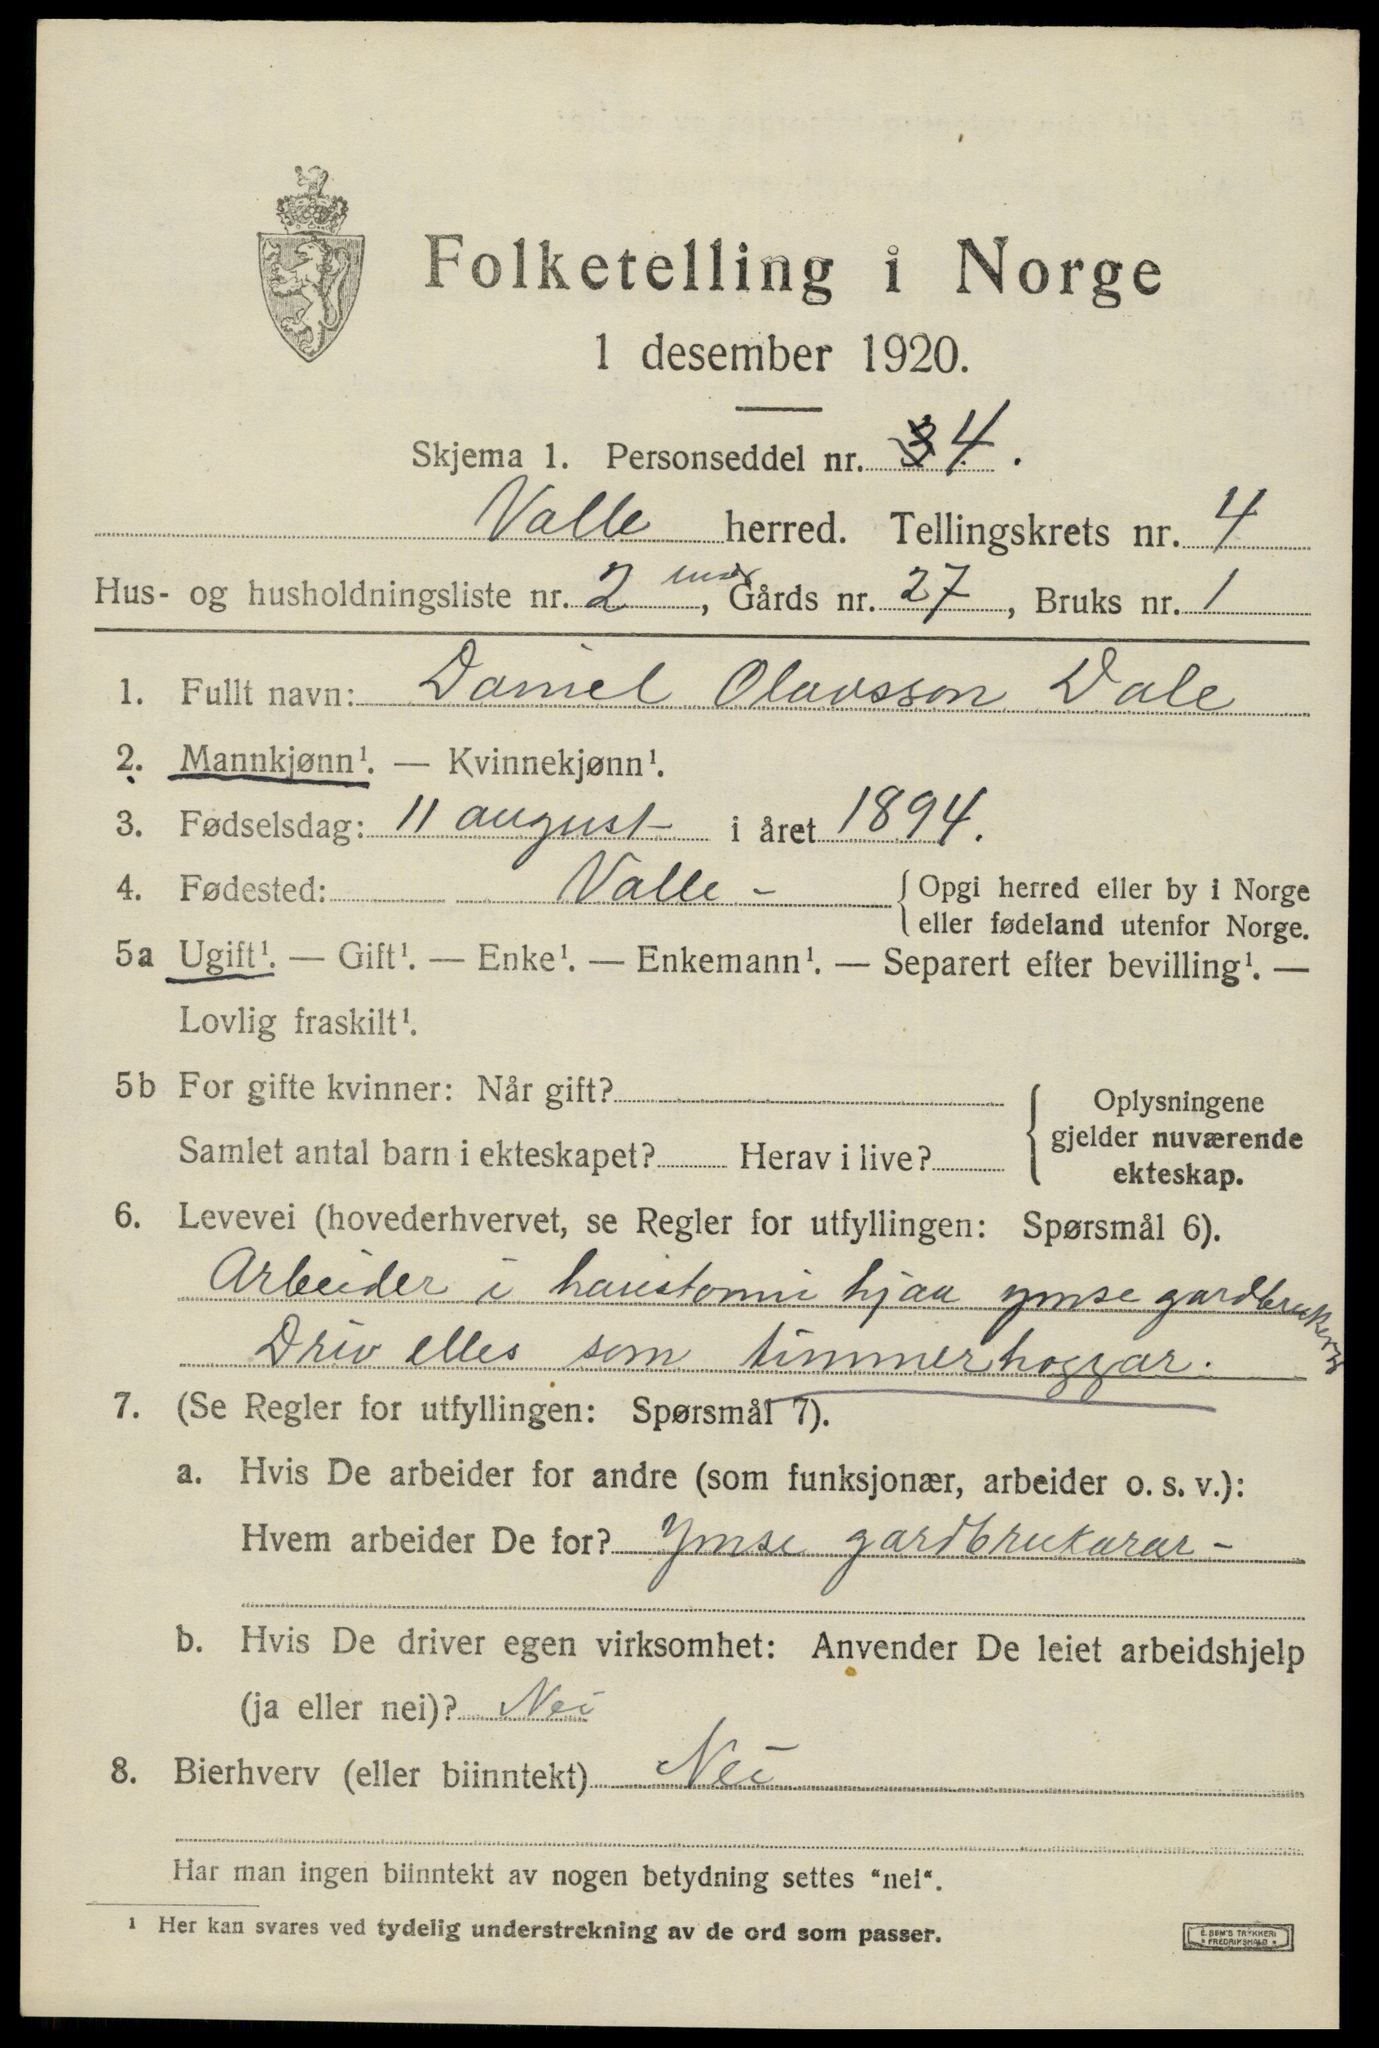 Folketelling i Norge
1 desember 1920.
Skjema 1. Personseddel nr. 4.
Valle herred. Tellingskrets nr. 4
Hus- og husholdningsliste nr. 2, Gårds nr. 27, Bruks nr. 1
1. Fullt navn: Daniel Olavsson Dale
2. Mannkjønn¹. — Kvinnekjønn¹.
3. Fødselsdag: 11 august i året 1894.
4. Fødested: Valle - { Opgi herred eller by i Norge
eller fødeland utenfor Norge.
5a Ugift¹. — Gift¹. — Enke¹. — Enkemann¹. — Separert efter bevilling¹. —
Lovlig fraskilt¹.
5b For gifte kvinner: Når gift?
Samlet antal barn i ekteskapet? Herav i live?
Oplysningene
gjelder nuværende
ekteskap.
6. Levevei (hovederhvervet, se Regler for utfyllingen: Spørsmål 6).
Arbeider i haustonni hjaa ymse gardbrukarar
Driv elles som timmerhoggar.
7. (Se Regler for utfyllingen: Spørsmål 7).
a. Hvis De arbeider for andre (som funksjonær, arbeider o. s. v.):
Hvem arbeider De for? Ymse gardbrukarar -
b. Hvis De driver egen virksomhet: Anvender De leiet arbeidshjelp
(ja eller nei)? Nei
8. Bierhverv (eller biinntekt) Nei
Har man ingen biinntekt av nogen betydning settes “nei“.
¹ Her kan svares ved tydelig understrekning av de ord som passer.
E. SEM'S TRYKKERI
* FREDRIKSHALD *